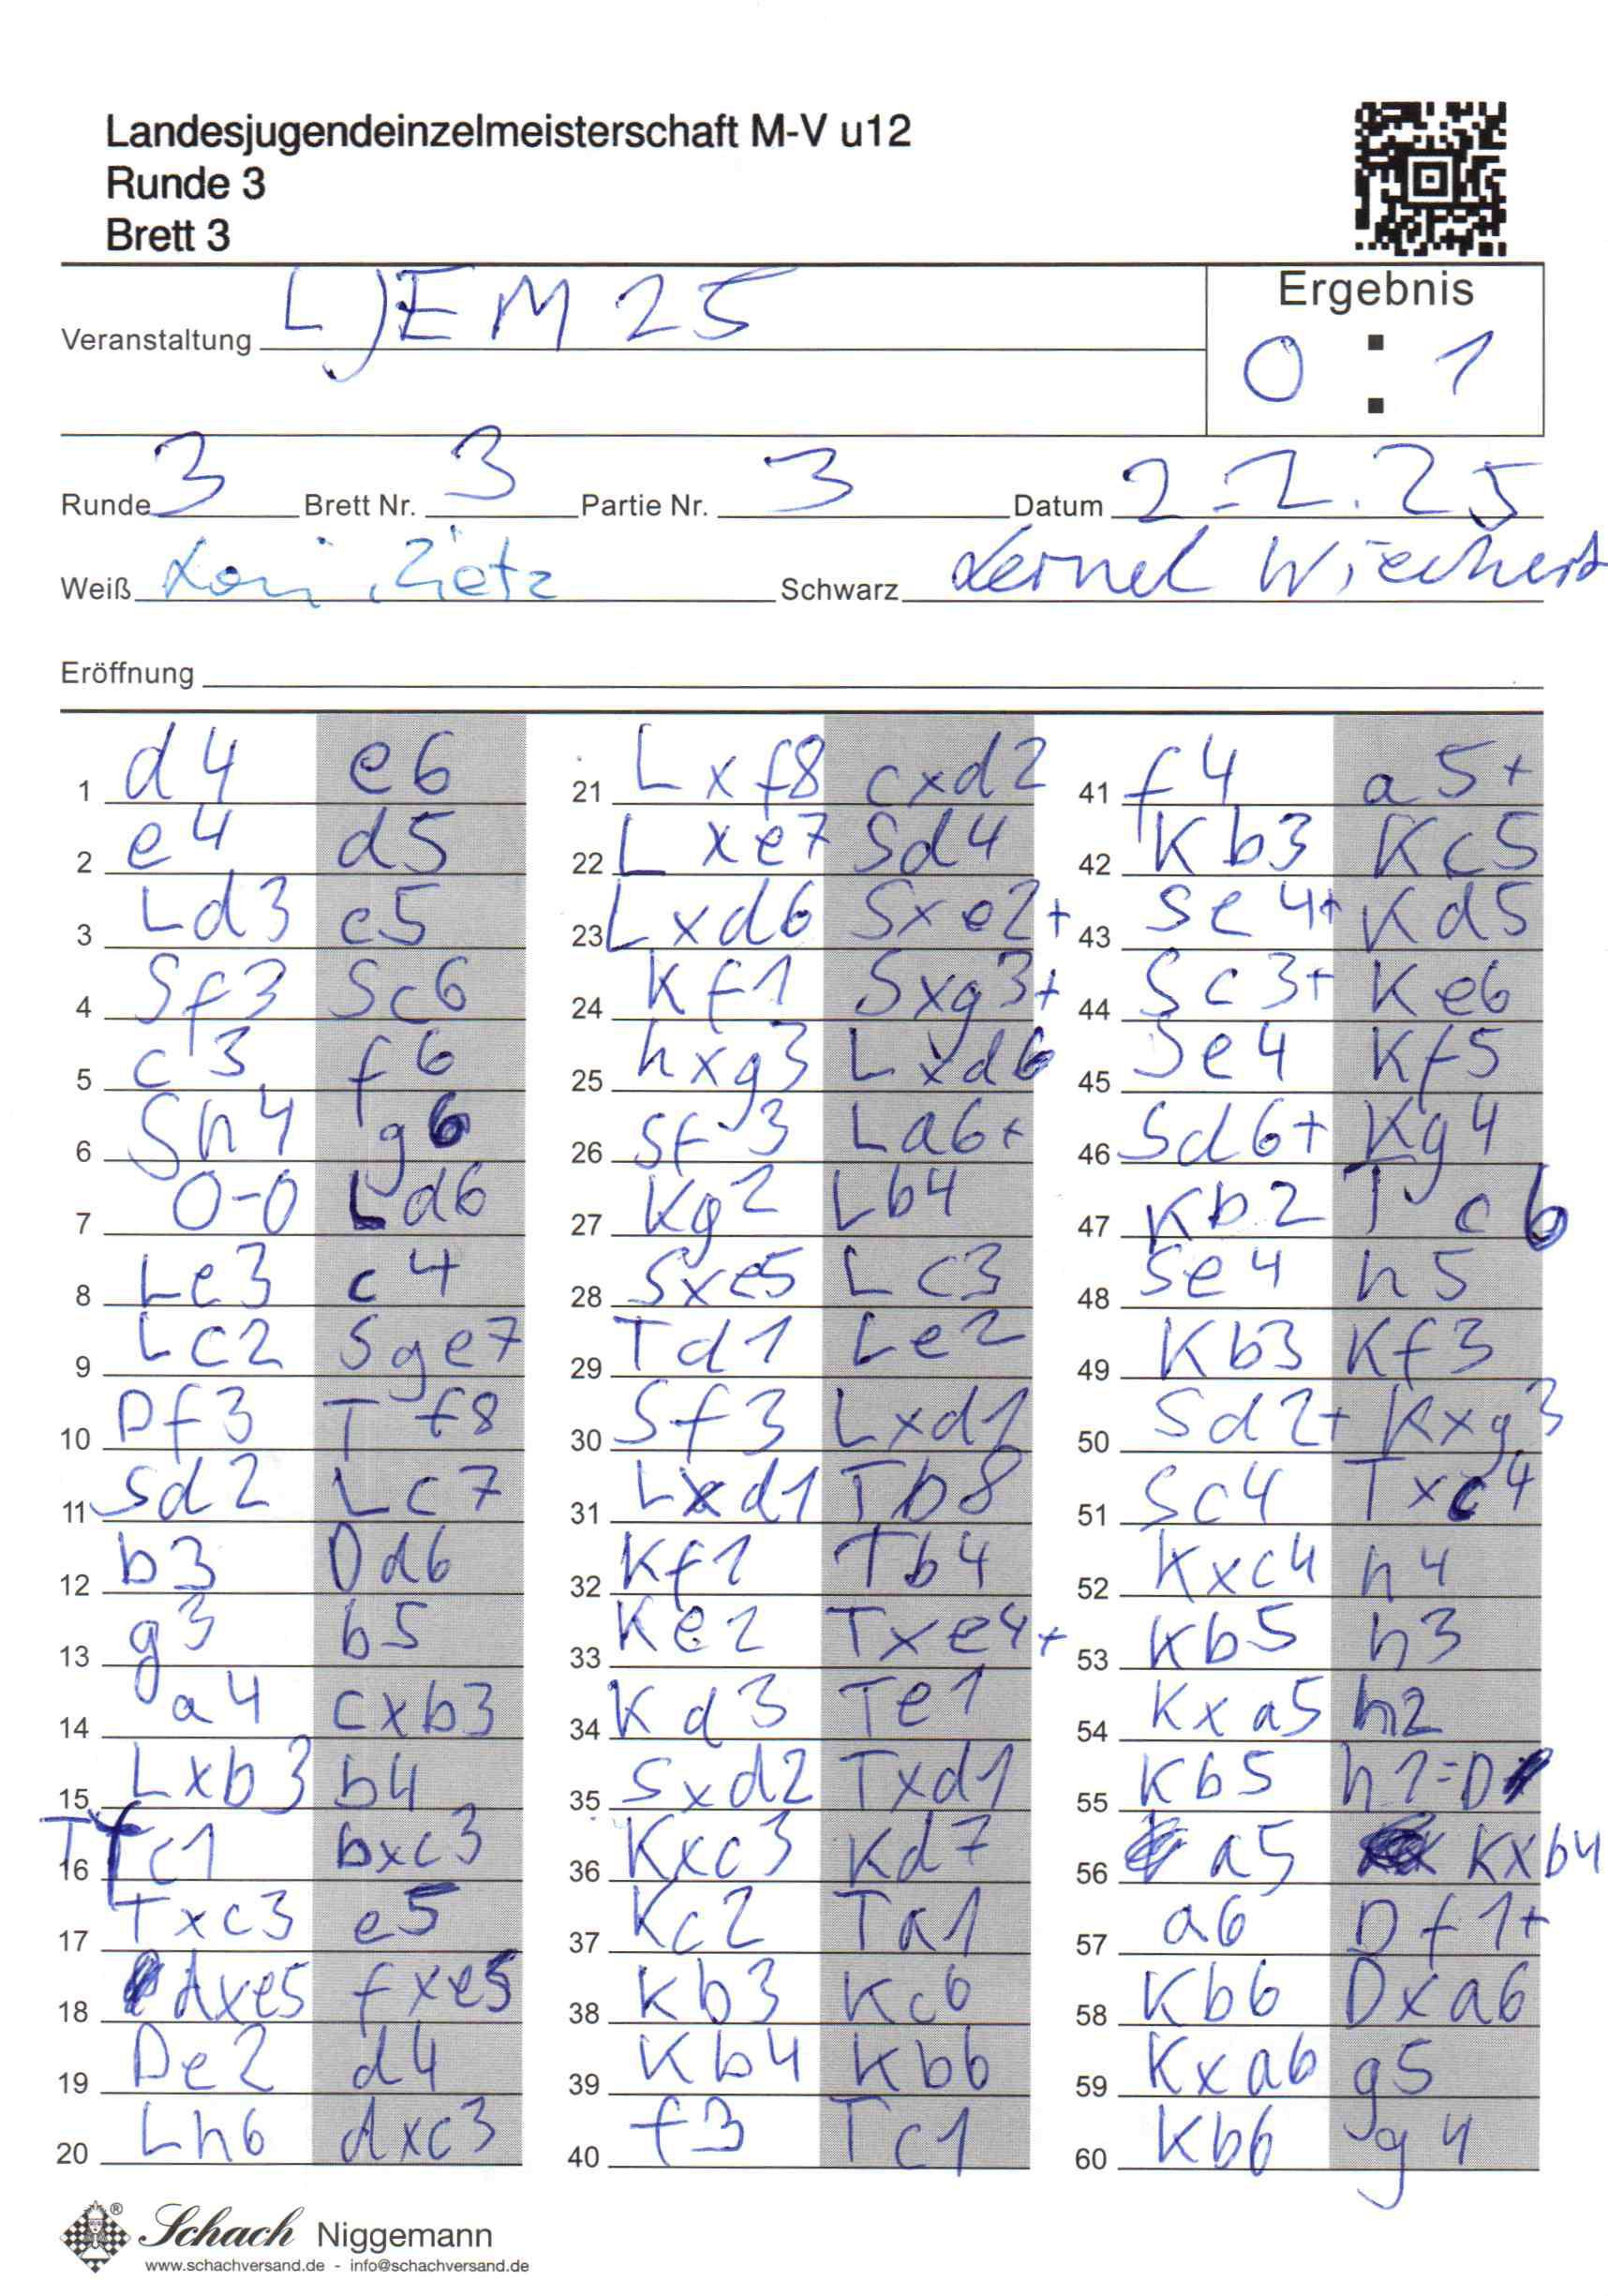 Landesjugendeinzelmeisterschaft M-V u12
Runde 3
Brett 3
Veranstaltung LJEM 25
Ergebnis
0 : 1
Runde 3 Brett Nr. 3 Partie Nr. 3 Datum 2.2.25
Weiß Zietz Schwarz Lernel Wiechert
Eröffnung
1 d4 e6
2 e4 d5
3 Ld3 c5
4 Sf3 Sc6
5 c3 f6
6 Sh4 g6
7 0-0 Ld6
8 Le3 c4
9 Lc2 Sge7
10 Df3 Tf8
11 Sd2 Lc7
12 b3 Dd6
13 g3 b5
14 a4 cxb3
15 Lxb3 b4
16 Tfc1 bxc3
17 Txc3 e5
18 dxe5 fxe5
19 De2 d4
20 Lh6 dxc3
21 Lxf8 cxd2
22 Lxe7 Sd4
23 Lxd6 Sxe2+
24 Kf1 Sxg3+
25 hxg3 Lxd6
26 Sf3 La6+
27 Kg2 Lb4
28 Sxe5 Lc3
29 Td1 Le2
30 Sf3 Lxd1
31 Lxd1 Tb8
32 Kf1 Tb4
33 Ke2 Txe4+
34 Kd3 Te1
35 Sxd2 Txd1
36 Kxc3 Kd7
37 Kc2 Ta1
38 Kb3 Kc6
39 Kb4 Kb6
40 f3 Tc1
41 f4 a5+
42 Kb3 Kc5
43 Se4+ Kd5
44 Sc3+ Ke6
45 Se4 Kf5
46 Sd6+ Kg4
47 Kb2 Tc6
48 Se4 h5
49 Kb3 Kf3
50 Sd2+ Kxg3
51 Sc4 Txc4
52 Kxc4 h4
53 Kb5 h3
54 Kxa5 h2
55 Kb5 h1=D
56 a5 Kxb4
57 a6 Df1+
58 Kb6 Dxa6
59 Kxa6 g5
60 Kb6 g4
Schach Niggemann
www.schachversand.de - info@schachversand.de